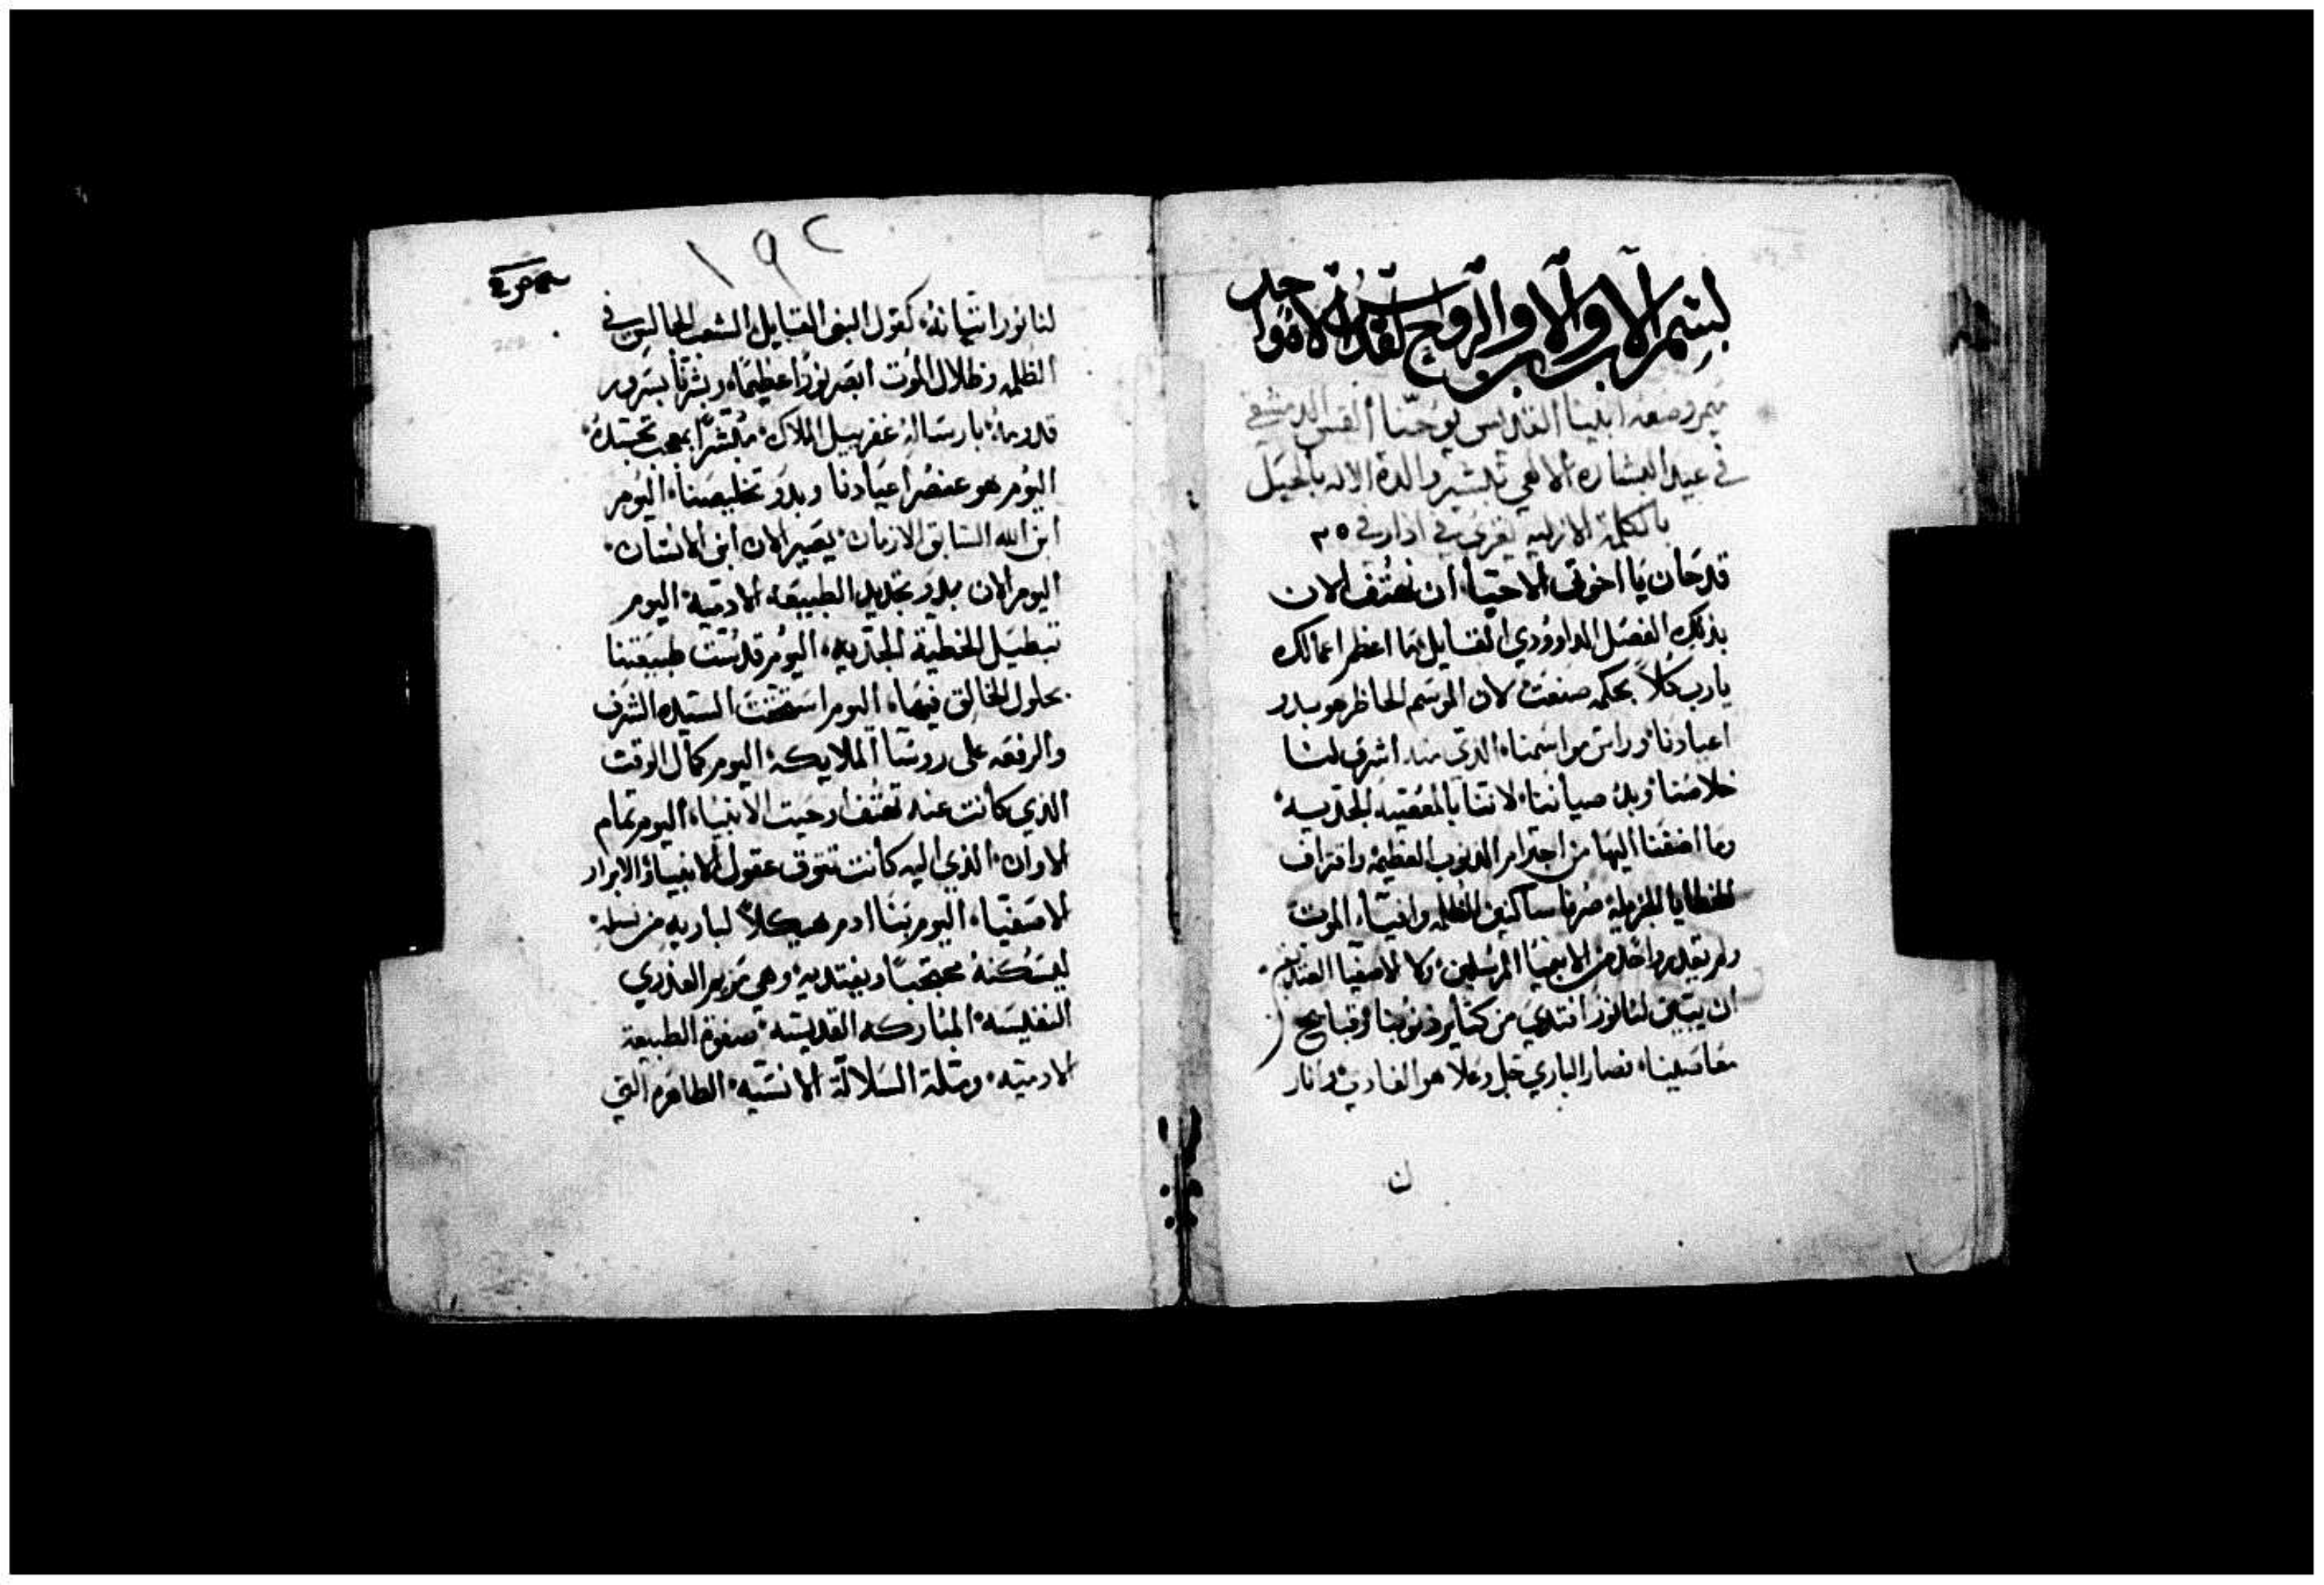 بسم الاب والابن والروح القدس الاه واحد
ميمر وضعه ابينا القديس يوحنا القس الدمشقي
في عيد البشاره الالهي تبشير والدة الاله بالحبل
بالكلمة الازليه يقرى في اذار في ٢٥
قد حان يا اخوتي الاحبا ان نهتف الان
بذلك الفصل الداوودي القايل ما اعظم اعمالك
يارب كلاً بحكمه صنعت لان الموسم الحاظر هو بدو
اعيادنا وراس مواسمنا الذي منه اشرق لنا
خلاصنا وبدُ صيانتنا لاننا بالمعصيه الجديه
وما اضفنا اليها من اجترام الذنوب العظيمه واقتراف
الخطايا صرنا ساكنين الظلمه وافياء الموت
ولم يقدر واحد من الانبيا المرسلين ولا الاصفيا
ان يبين لنا نورا من كثاير ذنوبنا وقبايح
معاصينا فصار الباري جل وعلا هو الفادي وانار
ن
١٩٢
لنا نور اتيانه كقول النبي القايل الشعب الجالس في
الظلمه وظلال الموت ابصر نورًا عظيمًا وبشرنا بسرور
قدومه بارسالة غفرييل الملاك مبشرًا بعجب تجسده
اليوم هو عنصر اعيادنا وبدو تخليصنا اليوم
ابن الله السابق الازمان يصير الان ابن الانسان
اليوم الان بدو تجديد الطبيعه الادميه اليوم
تبطيل الخطية الجديه اليوم قدست طبيعتنا
بحلول الخالق فيها اليوم استحقت السيده الشرف
والرفعه على روسا الملايكه اليوم كمال الوقت
الذي كانت عنه تهتف وحيت الانبيا اليوم تمام
الاوان الذي اليه كانت تتوق عقول الانبيا والابرار
الاصفيا اليوم بنا ادم هيكلاً لباريه من نسله
ليسكنه محتجبًا ويفتديه وهي مريم العذري
النفيسه المباركه القديسه صفوة الطبيعة
الادميه وسلة السلالة الانسيه الطاهره التي